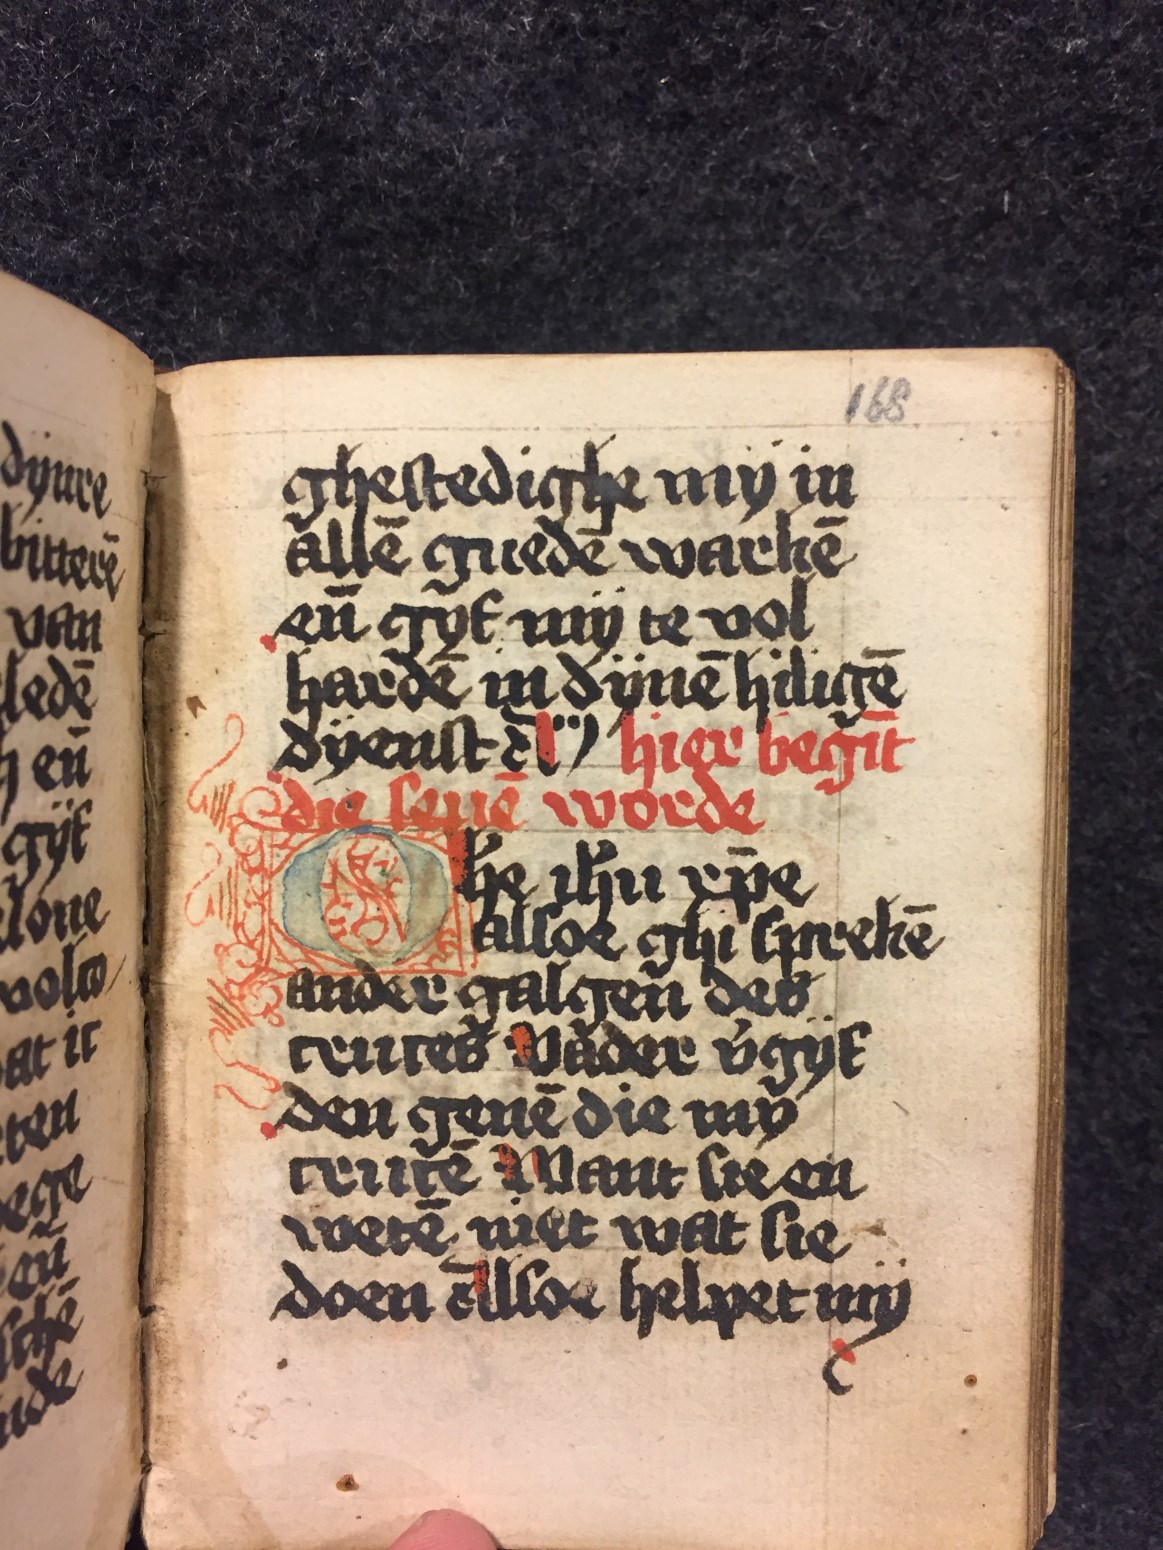 dyure
bitterē
van
ledē
eñ
gyf
lone
volco
at ic
ten
bege
eñ
schē
nde
168
ghestedighe mÿ in
allē guedē warkē
eñ gyf mÿ te vol
hardē in dÿnē hiligē
dyenst Al'' hier begīt
die seuē worde
O he ihū xp̄e
alsoe ghi sprekē
ander galgen des
cruces Vader v̄gÿf
den genē die mÿ
crucē Want sie en
wetē niet wat sie
doen Allsoe helpet mÿ